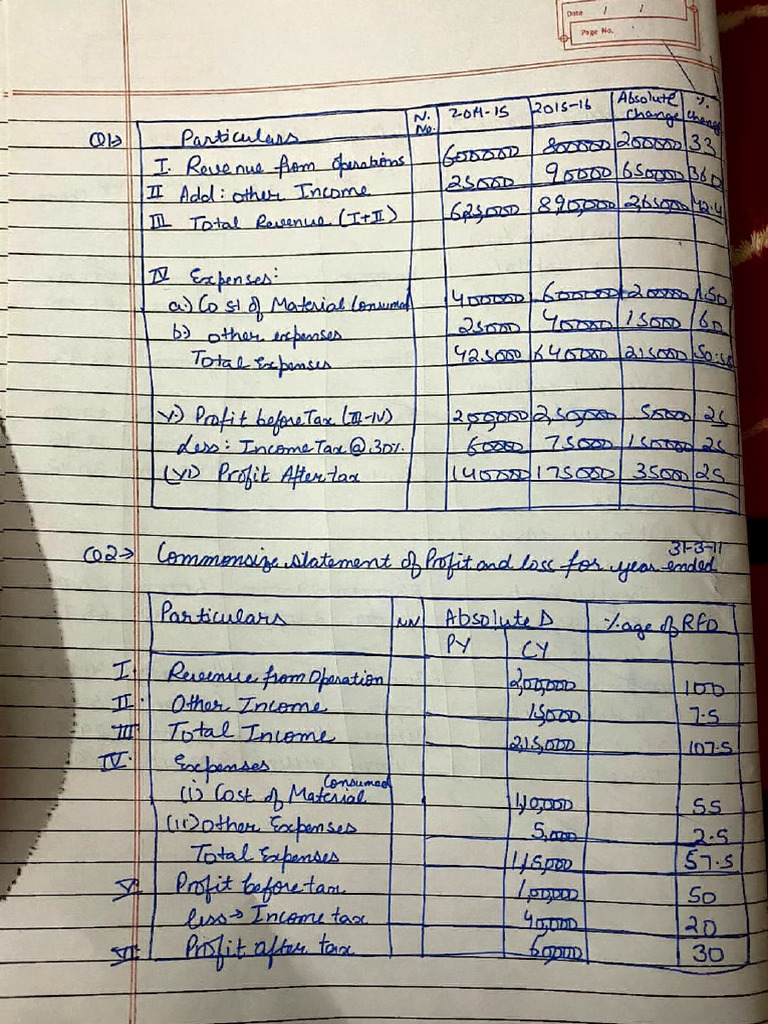 Date / /
Page No.
Q1> Particulars N. No. 2014-15 2015-16 Absolute Change % Change
I. Revenue from Operations 600000 800000 200000 33
II Add: other Income 25000 90000 650000 360
III Total Revenue (I+II) 625000 890,000 265000 42.4
IV Expenses:
a.) Cost of Material Consumed 400000 600000 200000 150
b.) other expenses 25000 40000 15000 60
Total Expenses 425000 640000 215000
V.) Profit before Tax (III-IV) 200,000 2,50,000 50000 25
Less: Income Tax @ 30%. 60000 75000 150000 25
(VI) Profit After tax 140000 175000 35000 25
Q2→ Commonsize statement of Profit and loss for year ended 31-3-11
Particulars NN Absolute Δ %age of RFO
PY CY
I. Revenue from Operation 2,00,000 100
II. Other Income 15,000 7.5
III. Total Income 2,15,000 107.5
IV. Expenses
(i) Cost of Material Consumed 1,10,000 55
(ii) Other Expenses 5,000 2.5
Total Expenses 1,15,000 57.5
V. Profit before tax 1,00,000 50
less→ Income tax 40,000 20
VI. Profit after tax 60,000 30